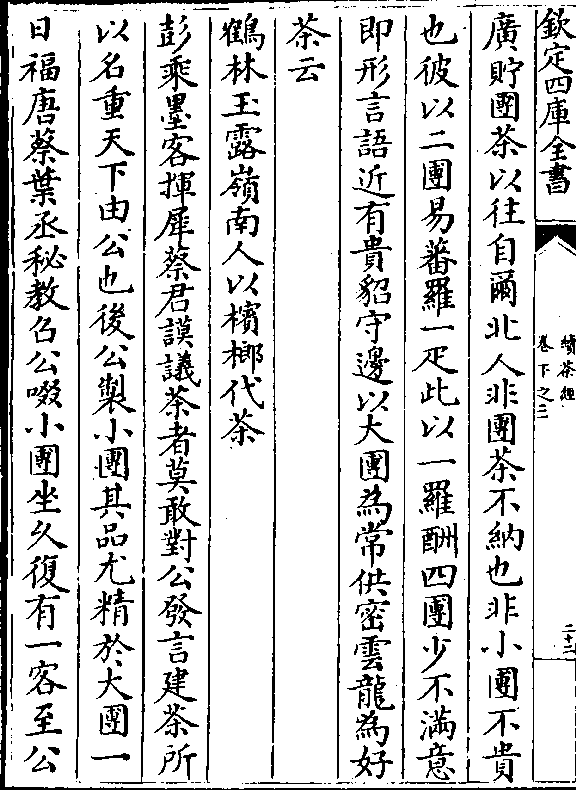 欽定四庫全書
續茶經
卷下之三
二十二
廣貯團茶以往自爾北人非團茶不納也非小團不貴
也彼以二團易蕃羅一疋此以一羅酬四團少不滿意
即形言語近有貴貂守邊以大團為常供密雲龍為好
茶云
鶴林玉露嶺南人以檳榔代茶
彭乘墨客揮犀蔡君謨議茶者莫敢對公發言建茶所
以名重天下由公也後公製小團其品尤精於大團一
日福唐蔡葉丞秘教召公啜小團坐久復有一客至公